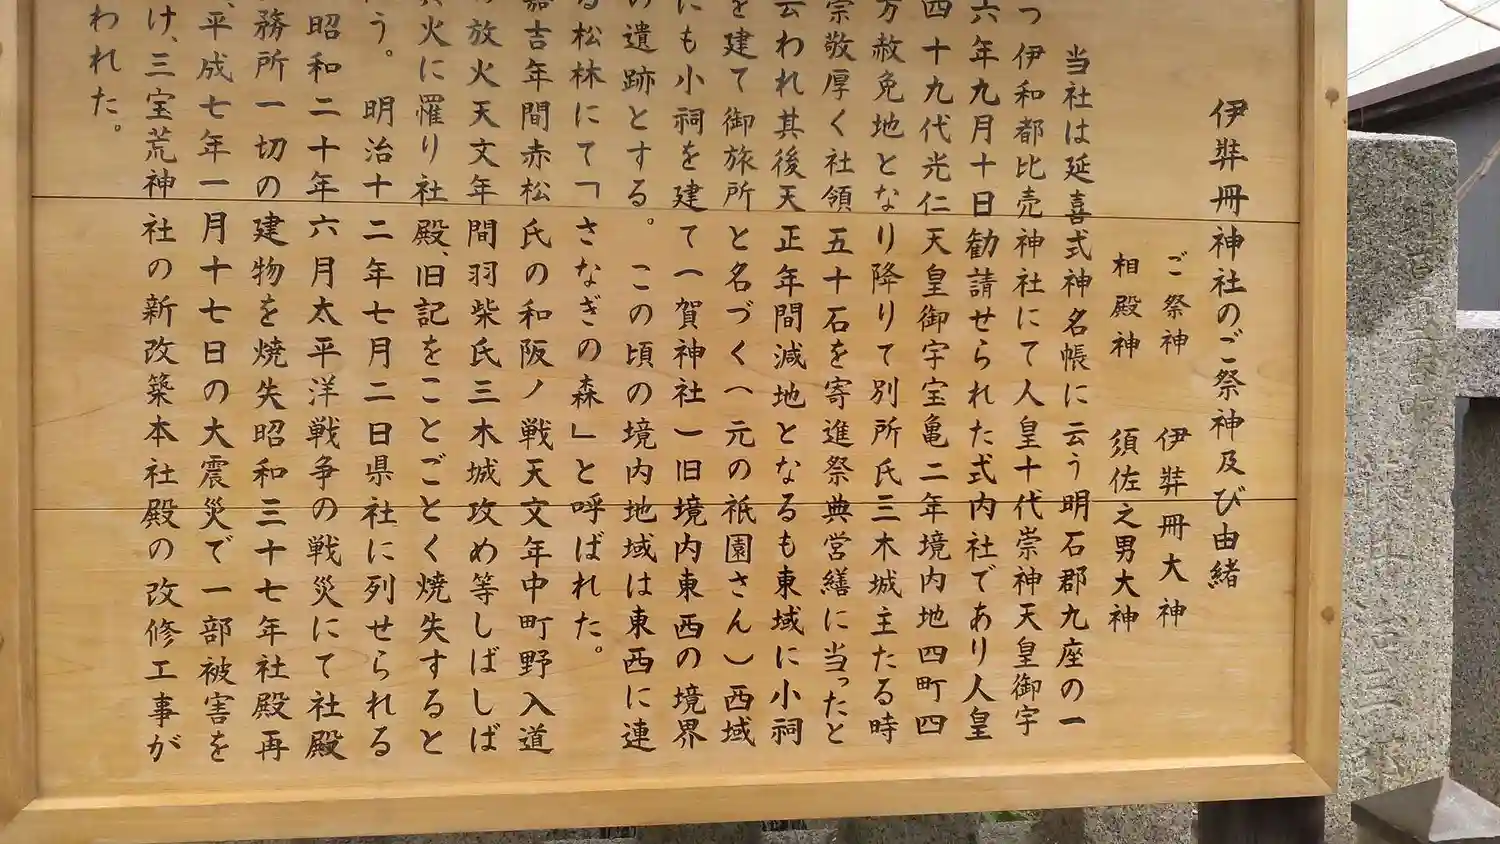 伊弉冊神社のご祭神及び由緒
ご祭神 伊弉冊大神
相殿神 須佐之男大神
当社は延喜式神名帳に云う明石郡九座の一
つ伊和都比売神社にて人皇十代崇神天皇御宇
六年九月十日勧請せられた式内社であり人皇
四十九代光仁天皇御宇宝亀二年境内地四町四
方赦免地となり降りて別所氏三木城主たる時
崇敬厚く社領五十石を寄進祭典営繕に当ったと
云われ其後天正年間減地となるも東域に小祠
を建て御旅所と名づく(元の祇園さん)西域
にも小祠を建て一賀神社)旧境内東西の境界
の遺跡とする。この頃の境内地域は東西に連
る松林にて「さなぎの森」と呼ばれた。
嘉吉年間赤松氏の和阪ノ戦天文年中町野入道
放火天文年間羽柴氏三木城攻め等しばしば
火に罹り社殿、旧記をことごとく焼失すると
う。明治十二年七月二日県社に列せられる
昭和二十年六月太平洋戦争の戦災にて社殿
務所一切の建物を焼失昭和三十七年社殿再
、平成七年一月十七日の大震災で一部被害を
け、三宝荒神社の新改築本社殿の改修工事が
われた。